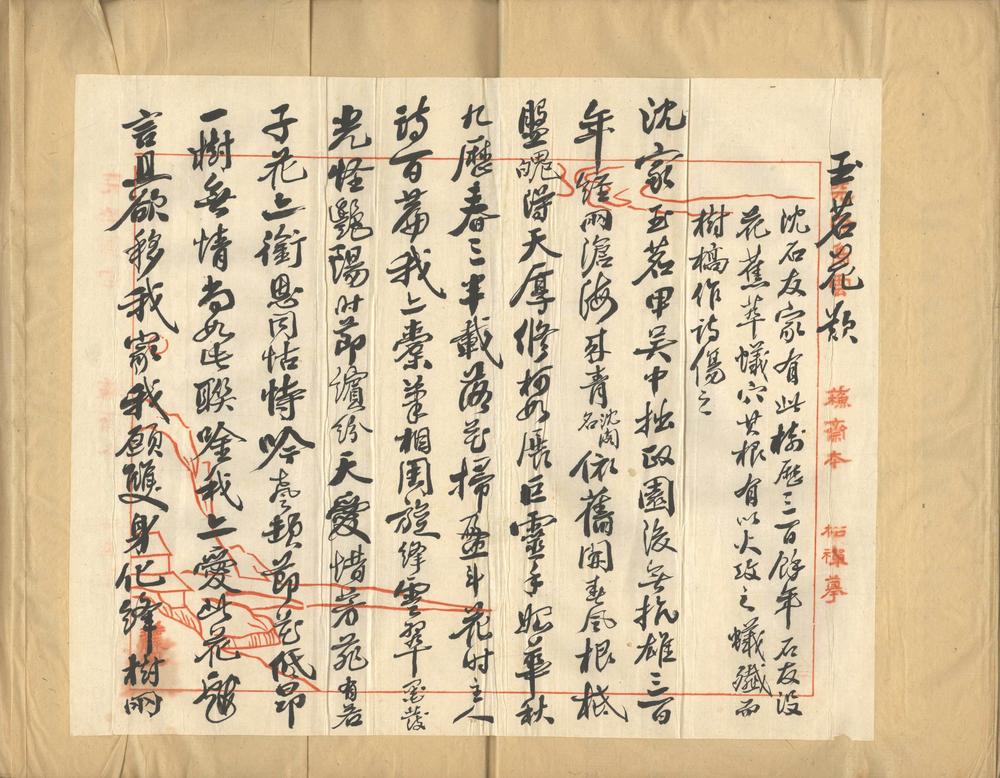 玉茗花歎
沈石友家有此樹歷三百餘年石友沒
花蕉萃蟻穴其根有以火攻之蟻殲而
樹槁作詩傷之
沈家玉茗甲吳中拙政園後無抗雄三百
年經兩滄海來青沈閣名依舊開春風根柢
盤魄得天厚修柯如展巨靈手娥華秋
九歷春三半載落花掃盈斗花時主人
詩百篇我亦橐筆相周旋絳雲翠墨發
光怪艷陽時節繽紛天愛惜芳菲有君
子花亦銜恩同怙恃吟聲頓節花低昂
一樹無情尚如此聯唫我亦愛此花
言且欲移我家我願雙身化絳樹兩
蘇齋本
松禪摹